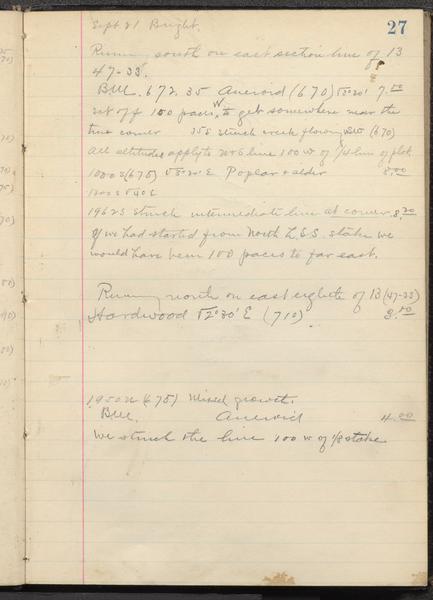 Sept 21 Bright.
27
Running south on east section line of 13
47-33.
BM. 672.35 Aneroid (670) 3°20' 7.00
set off 100 paces W to get somewhere near the
true corner 35S struck creek flowing WSW (670)
All altitudes apply to N+S line 100 W of 1/4 line of plat.
1000S (675) V3°20'E Poplar + alder 8.00
1200S V4°E
1962S struck intermediate line at corner 8.20
If we had started from North L.S.S. stake we
would have been 100 paces to far east.
Running north on east eighth of 13 (47-33)
Hardwood V2°30'E (710) 3.50
1950N (675) Mixed growth.
BM. Aneroid 4.00
We struck the line 100 W of 1/8 stake